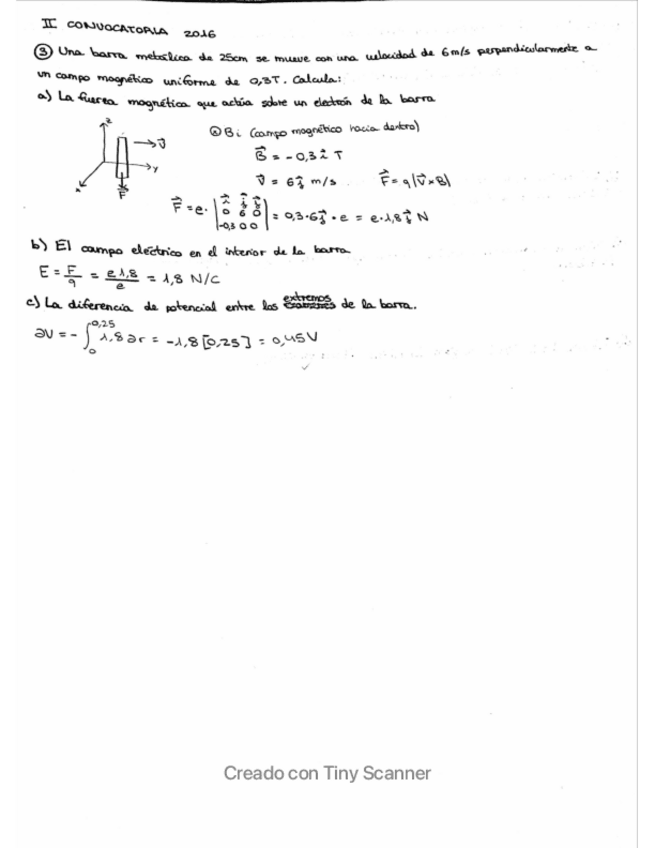 II CONVOCATORIA 2016
③ Una barra metálica de 25cm se mueve con una velocidad de 6 m/s perpendicularmente a
un campo magnético uniforme de 0,3T. Calcula:
a) La fuerza magnética que actúa sobre un electrón de la barra
z
→ v⃗
y
x
F⃗
⊗ Bi (campo magnético hacia dentro)
B⃗ = -0,3 i⃗ T
v⃗ = 6 j⃗ m/s F⃗ = q(v⃗ × B)
F⃗ = e · | i⃗ j⃗ k⃗ | 0 6 0 | -0,3 0 0 | = 0,3·6 j⃗ · e = e·1,8 j⃗ N
b) El campo eléctrico en el interior de la barra
E = F/q = e1,8/e = 1,8 N/C
c) La diferencia de potencial entre los extremos de la barra.
∂V = - ∫₀^0,25 1,8 ∂r = -1,8 [0,25] = 0,45V
Creado con Tiny Scanner